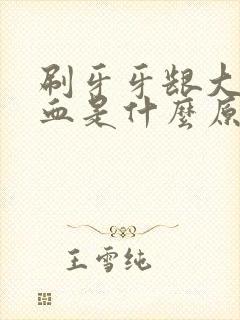 刷牙牙龈大
血是什麼原
王雪纯